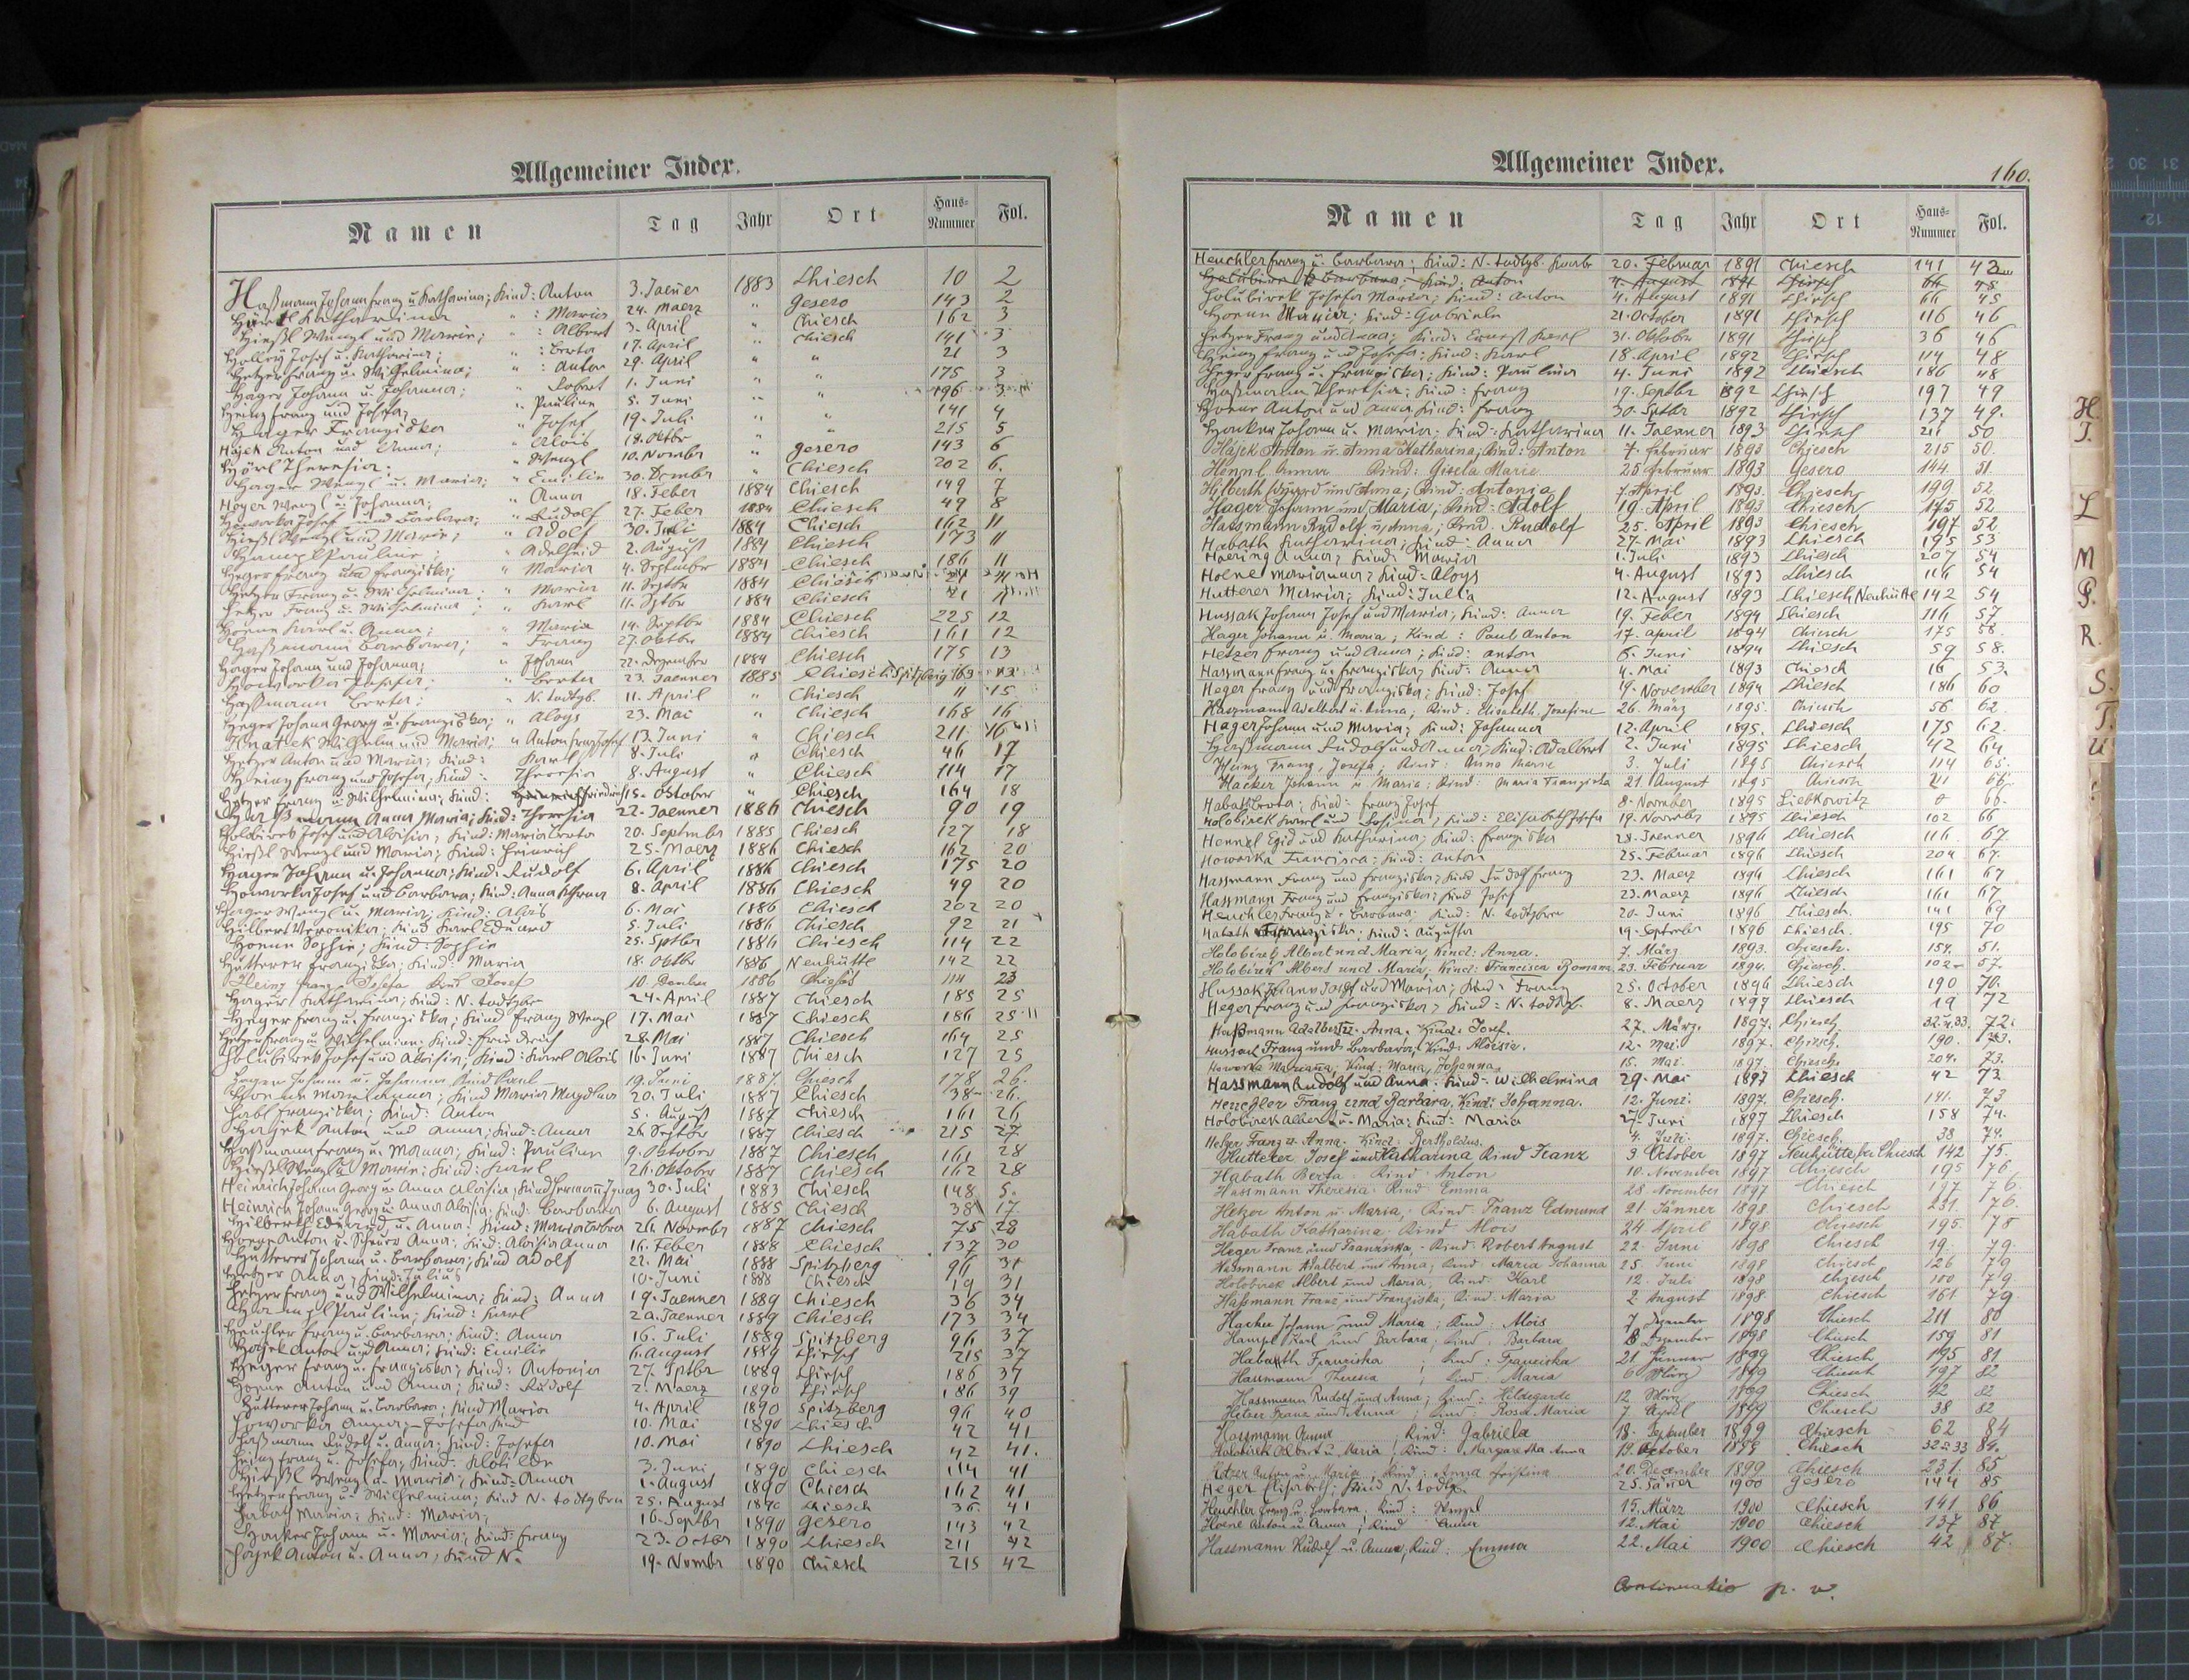 Allgemeiner Index.
Namen Tag Jahr Ort Haus-Nummer Fol.
Haßmann Johann Franz u Katharina; Kind: Anton 3. Jaener 1883 Chiesch 10 2
Katharina " : Maria 24. Maerz " Gesero 143 2
Hießl Wenzl und Marie; " : Albert 3. April " Chiesch 162 3
Holley Josef u. Katharina; " : Berta 17. April " Chiesch 141 3
Hetzer Franz u. Wilhelmina; " : Anton 29. April " " 21 3
Hager Johann u. Johanna; " Robert 1. Juni " " 175 3
Heinz Franz und Josefa; " Pauline 5. Juni " " 196 3
Hager Franziska " Josef 19. Juli " " 141 4
Hajek Anton und Anna; " Alois 18. Oktbr " " 215 5
Hörl Theresia; " Wenzl 10. Novmbr " Gesero 143 6
Hager Wenzl u. Maria; " Emilie 30. Dcmbr " Chiesch 202 6.
Hoyer Wenzl u. Johanna; " Anna 18. Feber 1884 Chiesch 149 7
Howorka Josef und Barbara; " Rudolf 27. Feber 1884 Chiesch 49 8
Hießl Wenzl und Marie; " Adolf 30. Juli 1884 Chiesch 162 11
Hampl Pauline; " Adelheid 2. August 1884 Chiesch 173 11
Heger Franz und Franziska; " Maria 4. September 1884 Chiesch 186 11
Hetzer Franz u. Wilhelmina; " Maria 11. Septbr 1884 Chiesch 21 11
Hetzer Franz u. Wilhelmina; " Karl 11. Sptbr 1884 Chiesch 21 11
Hoenn Karl u. Anna; " Maria 14. Septbr 1884 Chiesch 225 12
Haßmann Barbara; " Franz 27. Octbr 1884 Chiesch 161 12
Hager Johann und Johanna; " Johann 22. Dezember 1884 Chiesch 175 13
Howorka Josefa; " Berta 23. Jaenner 1885 Chiesch Spitzberg 163 13
Haßmann Berta; " N. todtgb. 11. April " Chiesch 11 15
Heger Johann Georg u. Franziska; " Aloys 23. Mai " Chiesch 168 16
Hnatek Wilhelm und Maria; " Anton Franz Josef 13. Juni " Chiesch 211 16
Hetzer Anton und Maria; Kind: Karl 8. Juli " Chiesch 46 17
Heinz Franz und Josefa; Kind: Theresia 8. August " Chiesch 114 17
Hetzer Franz u. Wilhelmina; Kind: Friedrich 15. October " Chiesch 164 18
Haßmann Anna Maria; Kind: Theresia 22. Jaenner 1886 Chiesch 90 19
Holobirek Josef und Aloisia; Kind: Maria Berta 20. Septmbr 1885 Chiesch 127 18
Hießl Wenzl und Maria; Kind: Heinrich 25. Maerz 1886 Chiesch 162 20
Hager Johann u. Johanna; Kind: Rudolf 6. April 1886 Chiesch 175 20
Howorka Josef und Barbara; Kind: Anna 8. April 1886 Chiesch 49 20
Hager Wenzl u. Maria; Kind: Alois 6. Mai 1886 Chiesch 202 20
Hilbert Veronika; Kind Karl Eduard 5. Juli 1886 Chiesch 92 21
Hoenn Sophie; Kind: Sophie 25. Sptbr 1886 Chiesch 114 22
Hutterer Franziska; Kind: Maria 18. Oktbr 1886 Neuhütte 142 22
Heinz Franz Josefa Kind Josef 10. Dember 1886 Chiesch 114 23
Hager Katharina; Kind: N. todtgbr 24. April 1887 Chiesch 185 25
Heger Franz u. Franziska; Kind Franz Wenzl 17. Mai 1887 Chiesch 186 25
Hetzer Franz u Wilhelmina; Kind: Friedrich 28. Mai 1887 Chiesch 164 25
Holubirek Josef und Aloisia; Kind: Karl Alois 16. Juni 1887 Chiesch 127 25
Hager Johann u. Johanna, Kind Paul 19. Juni 1887. Chiesch 178 26.
Hoenn Marianna; Kind Maria Magdlna 20. Juli 1887 Chiesch 38 26.
Habl Franziska; Kind: Anton 5. August 1887 Chiesch 161 26
Hajek Anton und Anna; Kind: Anna 26. Septbr 1887 Chiesch 215 27
Haßmann Franz u. Maria; Kind: Pauline 9. October 1887 Chiesch 161 28
Hießl Wenzl u. Maria; Kind: Karl 26. Oktober 1887 Chiesch 162 28
Heinrich Johann Georg u. Anna Aloisia; Kind Hermann Ignaz 30. Juli 1883 Chiesch 148 5.
Heinrich Johann Georg u. Anna Aloisia; Kind: Barbara 6. August 1885 Chiesch 38 17
Hilberth Eduard u. Anna; Kind: Maria Barbra 26. Novmbr 1887 Chiesch 75 28
Hoenn Anton u. Scheuer Anna; Kind: Aloisia Anna 16. Feber 1888 Chiesch 137 30
Hutterer Johann u. Barbara; Kind Adolf 22. Mai 1888 Spitzberg 96 31
Hetzer Anna; Kind: Julius 10. Juni 1888 Chiesch 19 31
Hetzer Franz und Wilhelmina; Kind: Anna 19. Jaenner 1889 Chiesch 36 34
Hampl Pauline; Kind: Karl 20. Jaenner 1889 Chiesch 173 34
Heuchler Franz u. Barbara; Kind: Anna 16. Juli 1889 Spitzberg 96 37
Hajek Anton und Anna; Kind: Emilie 6. August 1889 Chiesch 215 37
Heger Franz u. Franziska; Kind: Antonia 27. Sptbr 1889 Chiesch 186 37
Hoenn Anton und Anna; Kind: Rudolf 2. Maerz 1890 Chiesch 186 39
Hutterer Johann u. Barbara; Kind Maria 4. April 1890 Spitzberg 96 40
Howorka Anna; Josefa Kind 10. Mai 1890 Chiesch 42 41
Haßmann Rudolf u. Anna; Kind: Josefa 10. Mai 1890 Chiesch 42 41.
Heinz Franz u. Josefa; Kind: Klotilde 3. Juni 1890 Chiesch 114 41
Hießl Wenzl u. Maria; Kind: Anna 1. August 1890 Chiesch 162 41
Hetzer Franz u. Wilhelmina; Kind N. todtgbrn 25. August 1890 Chiesch 36 41
Habath Maria; Kind: Maria; 16. Septbr 1890 Gesero 143 42
Hacker Johann u. Maria; Kind: Franz 23. Octbr 1890 Chiesch 211 42
Hajek Anton u. Anna; Kind N. 19. Novmbr 1890 Chiesch 215 42
Allgemeiner Index.
160.
Namen Tag Jahr Ort Haus-Nummer Fol.
Heuchler Franz u. Barbara; Kind: N. todtgb. Knabe 20. Februar 1891 Chiesch 141 43
Holubirek Barbara Kind: Anton 4. August 1891 Chiesch 66 45
Holubirek Josefa Maria; Kind: Anton 4. August 1891 Chiesch 66 45
Hoenn Maria; Kind: Gabriele 21. October 1891 Chiesch 116 46
Hetzer Franz und Anna; Kind: Ernest Karl 31. Oktober 1891 Chiesch 36 46
Heinz Franz und Josefa; Kind: Karl 18. April 1892 Chiesch 114 48
Heger Franz u. Franziska; Kind: Paulina 4. Juni 1892 Chiesch 186 48
Haßmann Theresia; Kind: Franz 19. Septbr 1892 Chiesch 197 49
Hoenn Anton und Anna Kind: Franz 30. Sptbr 1892 Chiesch 137 49.
Hacker Johann u. Maria; Kind: Katharina 11. Jaenner 1893 Chiesch 211 50
Hájek Anton u. Anna Katharina; Kind: Anton 7. Februar 1893 Chiesch 215 50.
Hennl Anna Kind: Gisela Marie 25 Februar 1893 Gesero 144. 51.
Hilberth Eduard und Anna; Kind: Antonia 7. April 1893. Chiesch 199 52.
Hager Johann und Maria; Kind: Adolf 19. April 1893 Chiesch 175 52
Hassmann Rudolf u. Anna; Kind. Rudolf 25. April 1893 Chiesch 197 52
Habath Katharina; Kind: Anna 27. Mai 1893 Chiesch 195 53
Haering Anna; Kind: Maria 1. Juli 1893 Chiesch 207 54
Hoenel Marianna; Kind: Aloys 4. August 1893 Chiesch 116 54
Hutterer Maria; Kind: Julia 12. August 1893 Chiesch Neuhütte 142 54
Hussak Johann Josef und Maria; Kind: Anna 19. Feber 1894 Chiesch 116 57
Hager Johann u. Maria; Kind: Paul Anton 17. april 1894 Chiesch 175 58.
Hetzer Franz und Anna; Kind: Anton 6. Juni 1894 Chiesch 59 58.
Hassmann Franz u. Franziska; Kind: Anna 4. Mai 1893 Chiesch 16 53.
Heger Franz und Franziska; Kind: Josef 19. November 1894 Chiesch 186 60
Hassmann Adelbert u. Anna; Kind: Elisabeth Josefine 26. März 1895. Chiesch 56 62.
Hager Johann und Maria; Kind: Johanna 12. April 1895. Chiesch 175 62.
Haßmann Rudolf und Anna; Kind: Adalbert 2. Juni 1895 Chiesch 42 64
Heinz Franz, Josefa; Kind: Anna Marie 3. Juli 1895 Chiesch 114 65.
Hacker Johann u. Maria; Kind: Maria Franziska 21 August 1895 Chiesch 211 66.
Habath Berta; Kind: Franz Josef 8. November 1895 Liebkowitz 8 66.
Holobirek Karl und Rosina; Kind: Elisabeth Josefa 19. Novmber 1895 Chiesch 102 66
Hennzl Egid und Katharina; Kind: Franziska 28. Jaenner 1896 Chiesch 116 67.
Howorka Francisca; Kind: Anton 25. Februar 1896 Chiesch 204 67.
Hassmann Franz und Franziska; Kind Rudolf Franz 23. Maerz 1896 Chiesch 161 67
Hassmann Franz und Franziska; Kind Josef 23. Maerz 1896 Chiesch 161 67
Heuchler Franz u. Barbara; Kind: N. todtgbrn 20. Juni 1896 Chiesch. 141 69
Habath Franziska; Kind: Augusta 19. September 1896 Chiesch. 195 70
Holobirek Albert und Maria, Kind: Anna. 7. März 1893. Chiesch. 154. 51.
Holobirek Albert und Maria; Kind: Francisca Romana 23. Februar 1894. Chiesch. 102 57.
Hussak Johann Josef und Maria; Kind: Franz 25. October 1896 Chiesch 190 70.
Heger Franz und Franziska; Kind: N. todtg. 8. Maerz 1897 Chiesch 19 72
Haßmann Adalbert u. Anna. Kind: Josef. 27. März. 1897. Chiesch. 32 u. 33. 72.
Hussak Franz und Barbara, Kind: Aloisia. 12. Mai. 1897. Chiesch. 190. 73.
Howorka Marianna, Kind: Maria Johanna 15. Mai. 1897. Chiesch. 204. 73.
Hassmann Rudolf und Anna: Kind: Wilhelmina 29. Mai 1897 Chiesch 42 73
Heuchler Franz und Barbara, Kind: Johanna. 12. Juni. 1897. Chiesch. 141. 73
Holobirek Albert u. Maria: Kind: Maria 27. Juni 1897 Chiesch 158 74.
Hetzer Franz u. Anna. Kind: Bertholdus. 4. Juli. 1897. Chiesch. 38 74.
Hutterer Josef und Katharina Kind Franz 3 October 1897 Neuhütte bei Chiesch 142 75.
Habath Berta Kind: Anton 10. November 1897 Chiesch 195 76
Hassmann Theresia. Kind Emma 28. November 1897 Chiesch 197 76.
Hetzer Anton u. Maria, Kind Franz Edmund 21. Jänner 1898. Chiesch 231. 76.
Habath Katharina. Kind Alois 24 April 1898. Chiesch 195. 78
Heger Franz und Franziska, Kind Robert August 22. Juni 1898 Chiesch 19. 79.
Hassmann Adalbert und Anna; Kind Maria Johanna 25. Juni 1898 Chiesch 126 79
Holobirek Albert und Maria; Kind. Karl 12. Juli 1898 Chiesch 100 79
Haßmann Franz und Franziska; Kind. Maria 2 August 1898. Chiesch 161 79
Hacker Johann und Maria; Kind: Alois 7. Dezember 1898 Chiesch 211 80
Hampl Karl und Barbara, Kind, Barbara 8 Dezember 1898 Chiesch 159 81
Habath Franziska; Kind: Franciska 21 Jänner 1899 Chiesch 195 81
Hassmann Theresia; Kind: Maria 6 März 1899 Chiesch 197 82
Hassmann Rudolf und Anna; Kind: Hildegarde 12 März 1899 Chiesch 42 82
Hetzer Franz und Anna; Kind: Rosa Maria 7 April 1899 Chiesch 38 82
Hassmann Anna; Kind: Gabriela 18. September 1899 Chiesch 62 84
Holobirek Albert u. Maria; Kind: Margaretha Anna 19. October 1899 Chiesch 32 u 33 84.
Hetzer Anton u. Maria, Kind: Anna Kristina 20. December 1899 Chiesch 231. 85
Heger Elisabeth; Kind N. todtg. 25. Jänner 1900 Gesero 144 85
Heuchler Franz u. Barbara, Kind: Wenzel 15. März 1900 Chiesch 141 86
Hoenl Anton u. Anna; Kind Anna 12. Mai 1900 Chiesch 137 87
Hassmann Rudolf u. Anna; Kind: Emma 22. Mai 1900 Chiesch 42 87.
Continuatio p. v.
H.
I.
L
M
P.
R.
S.
T.
U